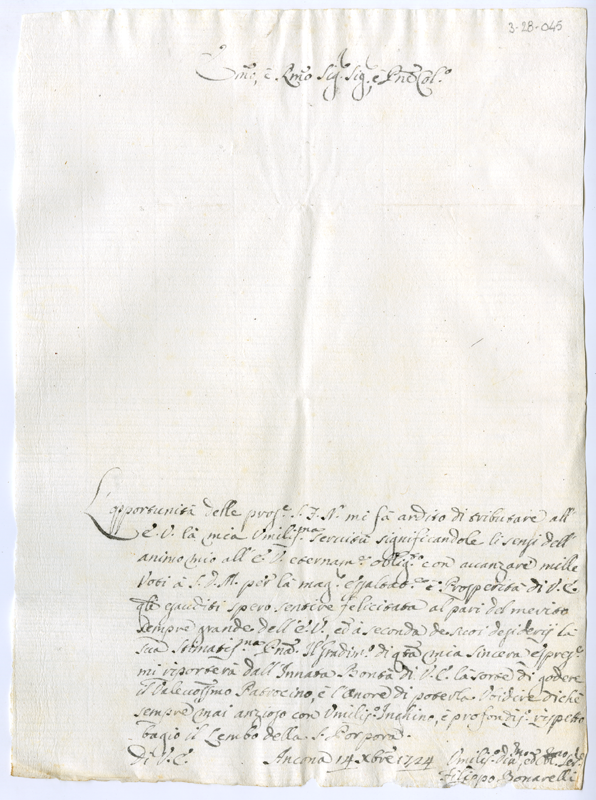 3-28-045
Emo, e Rmo Sig. Sig., e Pne Col.o
L'opportunità delle pros.e S. F. N. mi fà ardito di tributare all'
E. V. la mia Umilis.ma servitù significandole li sensi dell'
animo mio all' E. V. eternam.e oblig.o con avanzare mille
Voti à S. D. M. per la mag.r essaltao.e e Prosperità di V. E.
q̃li esauditi spero sentire felicitata al pari del merito
sempre grande dell' E. V. ed à seconda de suoi desiderij la
sua Stimatis.ma Il gradim.o di q̃ta mia sincera espres.e
mi riporterà dall' Innata Bontà di V. E. la sorte di godere
il Valevoliss.mo Patrocino, e l'onore di poterla Vbidire di che
sempre mai anzioso con Umilis.o Inchino, e profondis.o rispetto
bagio il Lembo della S. Porpora.
Di V. E. Ancona 14 Xbre 1724 Umilis.o Dia.mo ed Obl. Ser.
Filippo Bonarelli